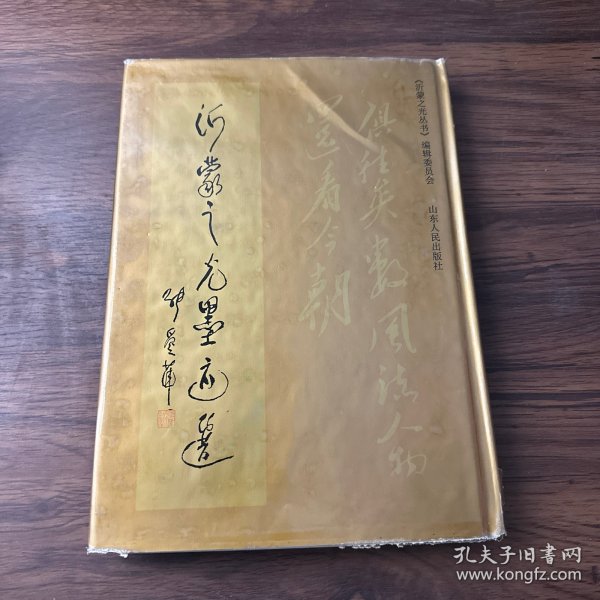 《沂蒙之光丛书》编辑委员会 山东人民出版社
俱往矣数风流人物
还看今朝
沂蒙之光墨迹选
孔夫子旧书网
www.kongfz.com